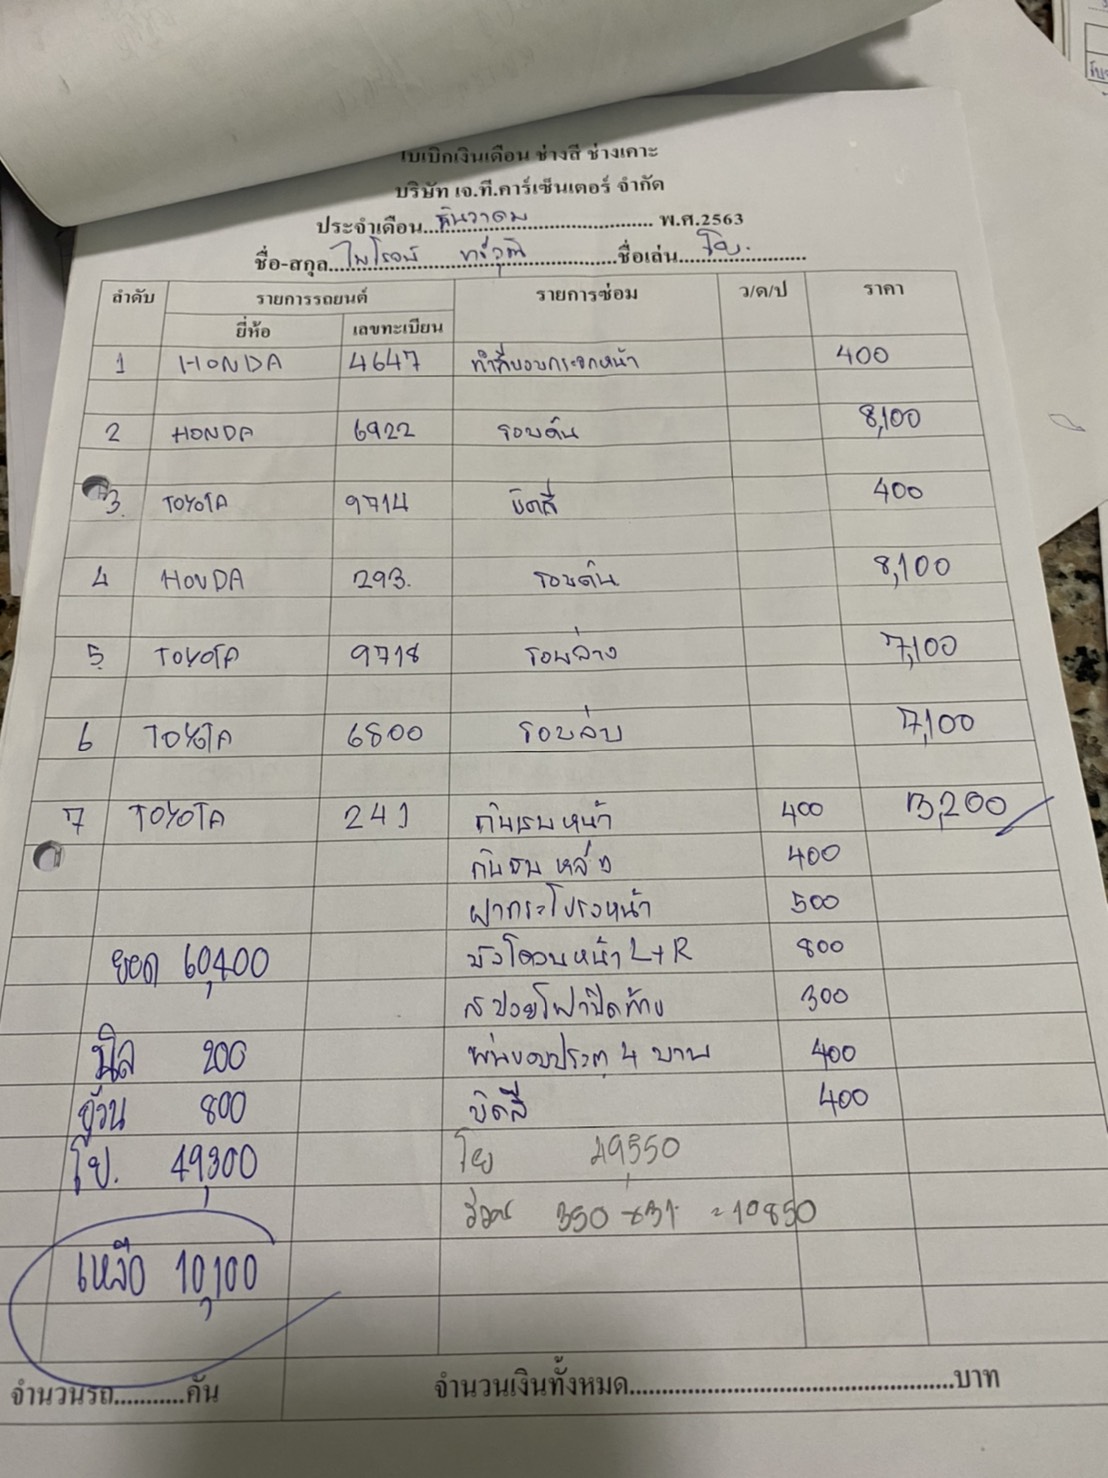 ใบเบิกเงินเดือน ช่างสี ช่างเคาะ
บริษัท เจ.ที.คาร์เซ็นเตอร์ จำกัด
ประจำเดือน...ธันวาคม... พ.ศ.2563
ชื่อ-สกุล...ไพโรจน์ ... ชื่อเล่น...โย...
ลำดับ รายการรถยนต์ รายการซ่อม ว/ด/ป ราคา
ยี่ห้อ เลขทะเบียน
1 HONDA 4647 ทำสีขอบกระจกหน้า 400
2 HONDA 6922 รอบคัน 8,100
3. TOYOTA 9714 ขัดสี 400
4 HONDA 293. รอบคัน 8,100
5 TOYOTA 9718 รอบล่าง 7,100
6 TOYOTA 6800 7,100
7 TOYOTA 241 กันชนหน้า 400 3,200
กันชนหลัง 400
ฝากระโปรงหน้า 500
ยอด 60,400 บังโคลนหน้า L+R 800
300
นิล 200 พ่นขอบประตู 4 บาน 400
อ้วน 800 ขัดสี 400
โย. 49,300 โย 49,550
350 x 31 = 10850
เหลือ 10,100
จำนวนรถ...........คัน จำนวนเงินทั้งหมด..................................................บาท